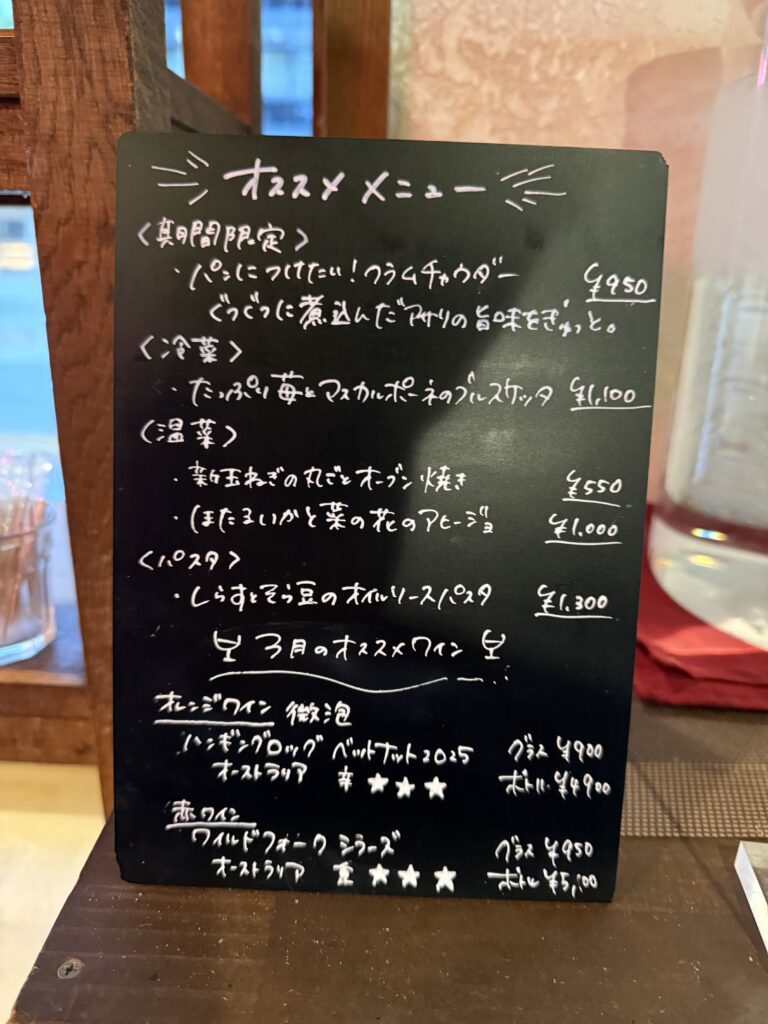 オススメメニュー
〈期間限定〉
・パンにつけたい！クラムチャウダー ¥950
ぐつぐつに煮込んだアサリの旨味をぎゅっと。
〈冷菜〉
・たっぷり苺とマスカルポーネのブルスケッタ ¥1,100
〈温菜〉
・新玉ねぎの丸ごとオーブン焼き ¥550
・ほたるいかと菜の花のアヒージョ ¥1,000
〈パスタ〉
・しらすとそら豆のオイルソースパスタ ¥1,300
3月のオススメワイン
オレンジワイン 微泡
ハンギングロック ペットナット2025 グラス ¥900
オーストラリア 辛 ★★★ ボトル ¥4900
赤ワイン
ワイルドフォーク シラーズ グラス ¥950
オーストラリア 重 ★★★ ボトル